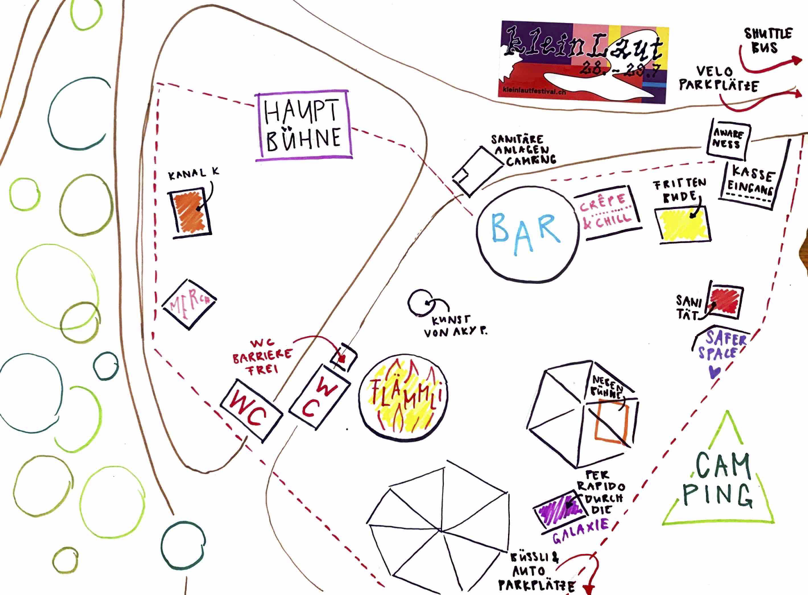 kleinLaut
28.-29.7
kleinlautfestival.ch
SHUTTLE
BUS
VELO
PARKPLÄTZE
HAUPT
BÜHNE
SANITÄRE
ANLAGEN
CAMPING
AWARE
NESS
KASSE
EINGANG
KANAL K
BAR
CRÊPE
& CHILL
FRITTEN
BUDE
MERCH
KUNST
VON AKY P.
SANI
TÄT
SAFER
SPACE
WC
BARRIERE
FREI
WC
WC
FLÄMMLI
NEBEN
BÜHNE
CAM
PING
PER
RAPIDO
DURCH
DIE
GALAXIE
BÜSSLI &
AUTO
PARKPLÄTZE